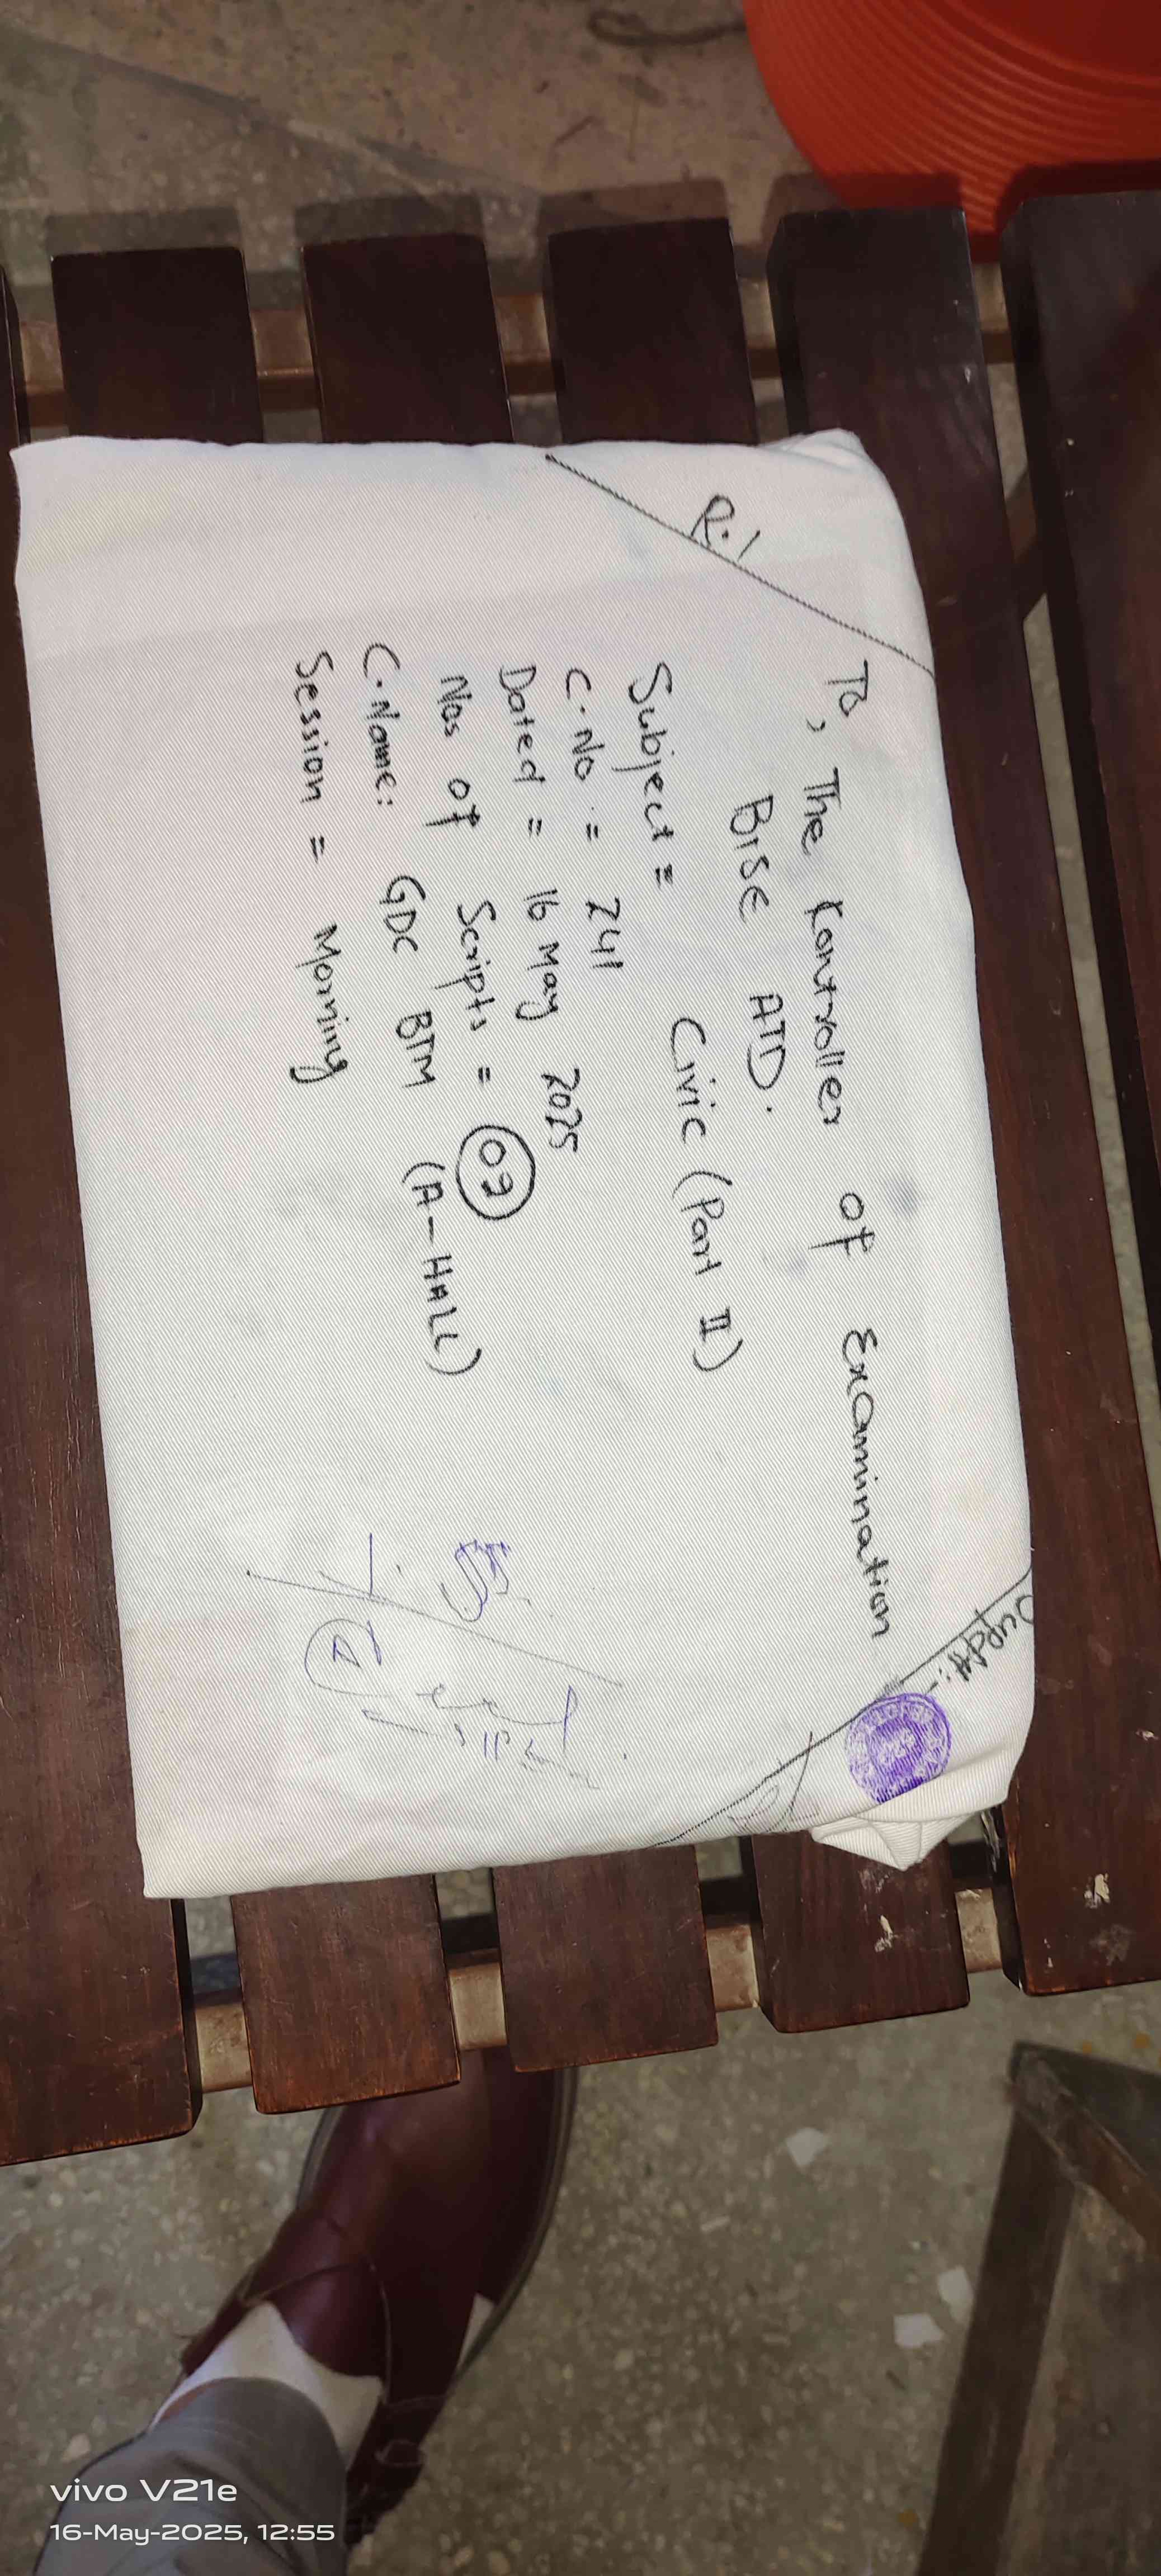 R.1
To, The Kontroller of Examination
BISE ATD.
Subject = Civic (Part II)
C.No = 241
Dated = 16 May 2025
Nos of Scripts = 07
C.Name: GDC BTM (A-HALL)
Session = Morning
Supdtt:-
vivo V21e
16-May-2025, 12:55